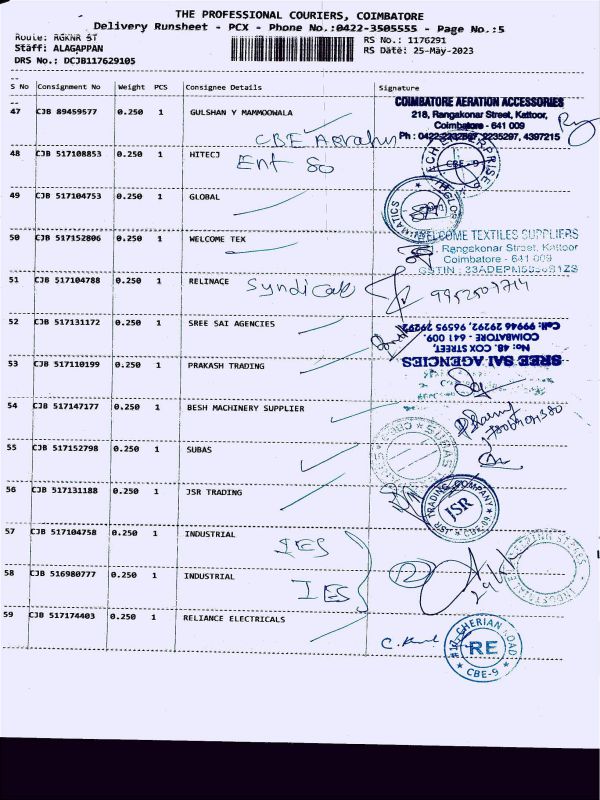 THE PROFESSIONAL COURIERS, COIMBATORE
Delivery Runsheet - PCX - Phone No.:0422-3505555 - Page No.:5
Route: RGKNR ST
RS No.: 1176291
Staff: ALAGAPPAN
RS Date: 25-May-2023
DRS No.: DCJB117629105
S No Consignment No Weight PCS Consignee Details Signature
47 CJB 89459577 0.250 1 GULSHAN Y MAMMOOWALA
COIMBATORE AERATION ACCESSORIES
218, Rangakonar Street, Kattoor,
Coimbatore - 641 009
Ph : 0422-2235297, 4397215
CBE
48 CJB 517108853 0.250 1 HITECJ
Ent So
CBE - 9
49 CJB 517104753 0.250 1 GLOBAL
50 CJB 517152806 0.250 1 WELCOME TEX
WELCOME TEXTILES SUPPLIERS
Rangakonar Street, Kattoor
Coimbatore - 641 009
51 CJB 517104788 0.250 1 RELINACE
Syndicate
52 CJB 517131172 0.250 1 SREE SAI AGENCIES
SREE SAI AGENCIES
No: 48, COX STREET,
COIMBATORE - 641 009.
Cell: 99946 29292, 96595 29292
53 CJB 517110199 0.250 1 PRAKASH TRADING
54 CJB 517147177 0.250 1 BESH MACHINERY SUPPLIER
55 CJB 517152798 0.250 1 SUBAS
SUBAS
56 CJB 517131188 0.250 1 JSR TRADING
JSR TRADING COMPANY
JSR
57 CJB 517104758 0.250 1 INDUSTRIAL
IES
58 CJB 516980777 0.250 1 INDUSTRIAL
IES
2
59 CJB 517174403 0.250 1 RELIANCE ELECTRICALS
CHERIAN ROAD
RE
CBE-9